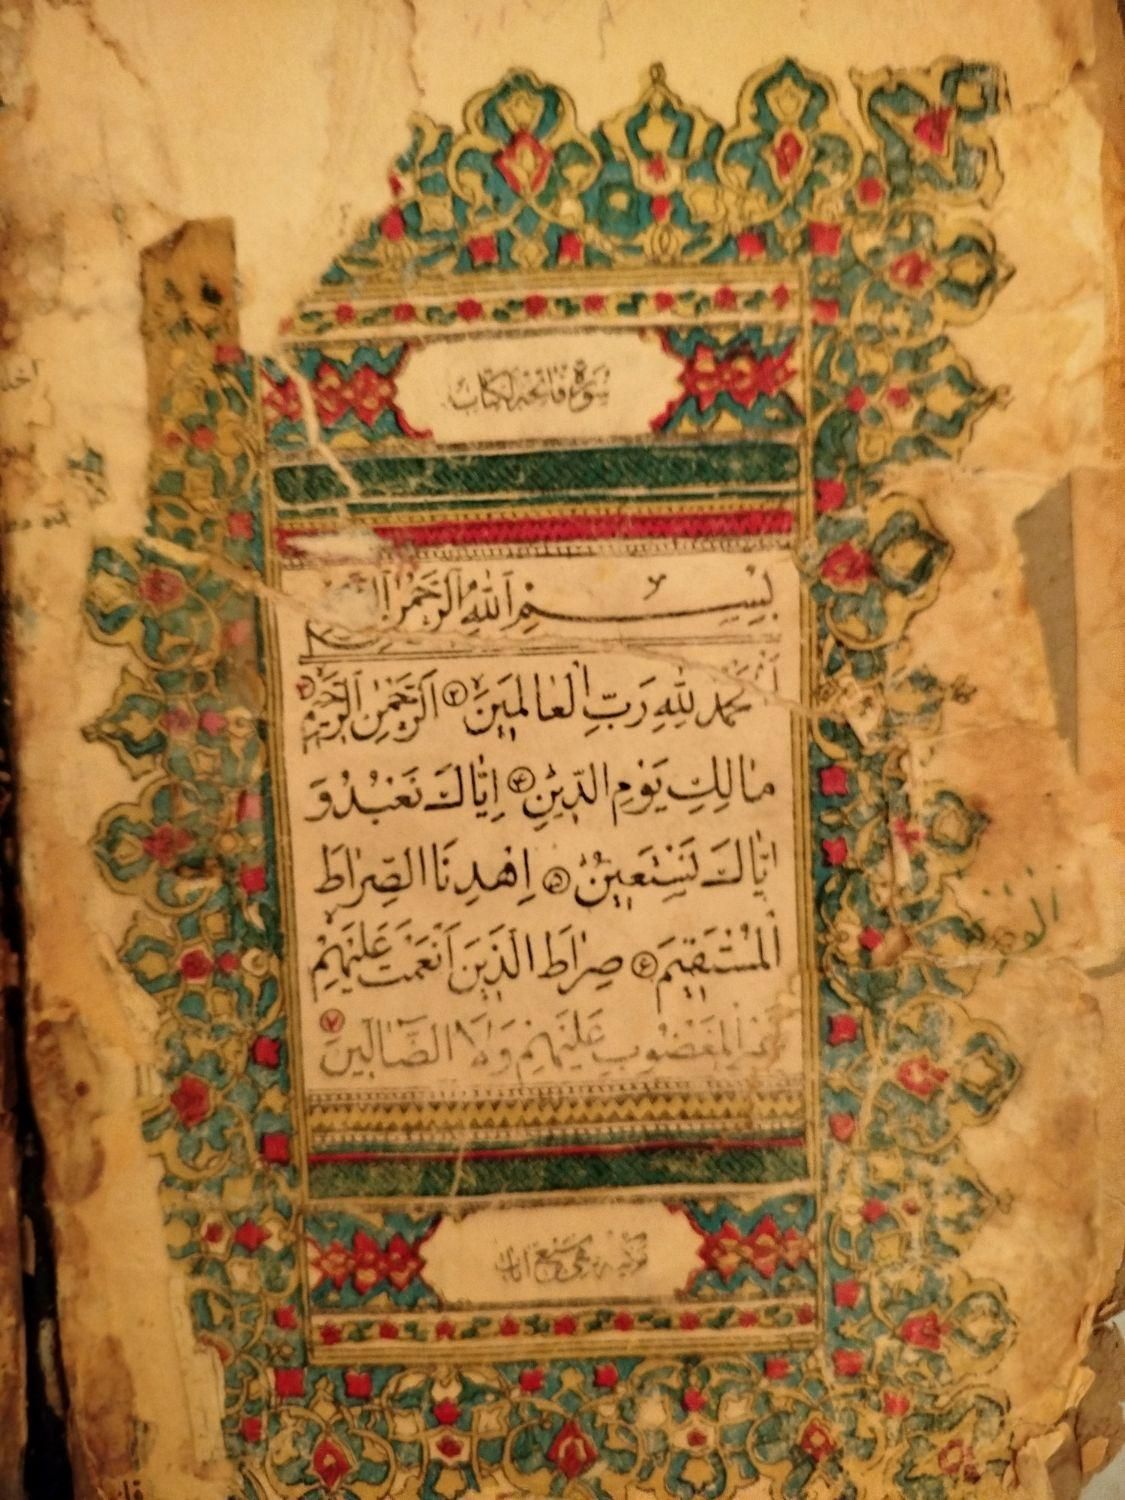 سورة فاتحة الكتاب
بِسْمِ اللّٰهِ الرَّحْمٰنِ
اَلْحَمْدُ لِلّٰهِ رَبِّ الْعَالَمِينَ ٢ اَلرَّحْمٰنِ الرَّحِيمِ ٣
مَالِكِ يَوْمِ الدِّينِ ٤ اِيَّاكَ نَعْبُدُ وَ
اِيَّاكَ نَسْتَعِينُ ٥ اِهْدِنَا الصِّرَاطَ
الْمُسْتَقِيمَ ٦ صِرَاطَ الَّذِينَ اَنْعَمْتَ عَلَيْهِمْ
غَيْرِ الْمَغْضُوبِ عَلَيْهِمْ وَلَا الضَّالِّينَ ٧
سبع آيات